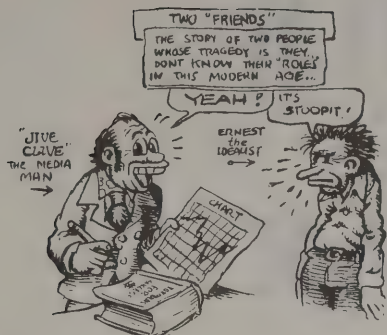 TWO "FRIENDS"
THE STORY OF TWO PEOPLE
WHOSE TRAGEDY IS THEY..
DONT KNOW THEIR "ROLES"
IN THIS MODERN AGE...
YEAH!
IT'S
STUOPIT!
"JIVE
CLIVE"
THE MEDIA
MAN
ERNEST
the
IDEALIST
CHART